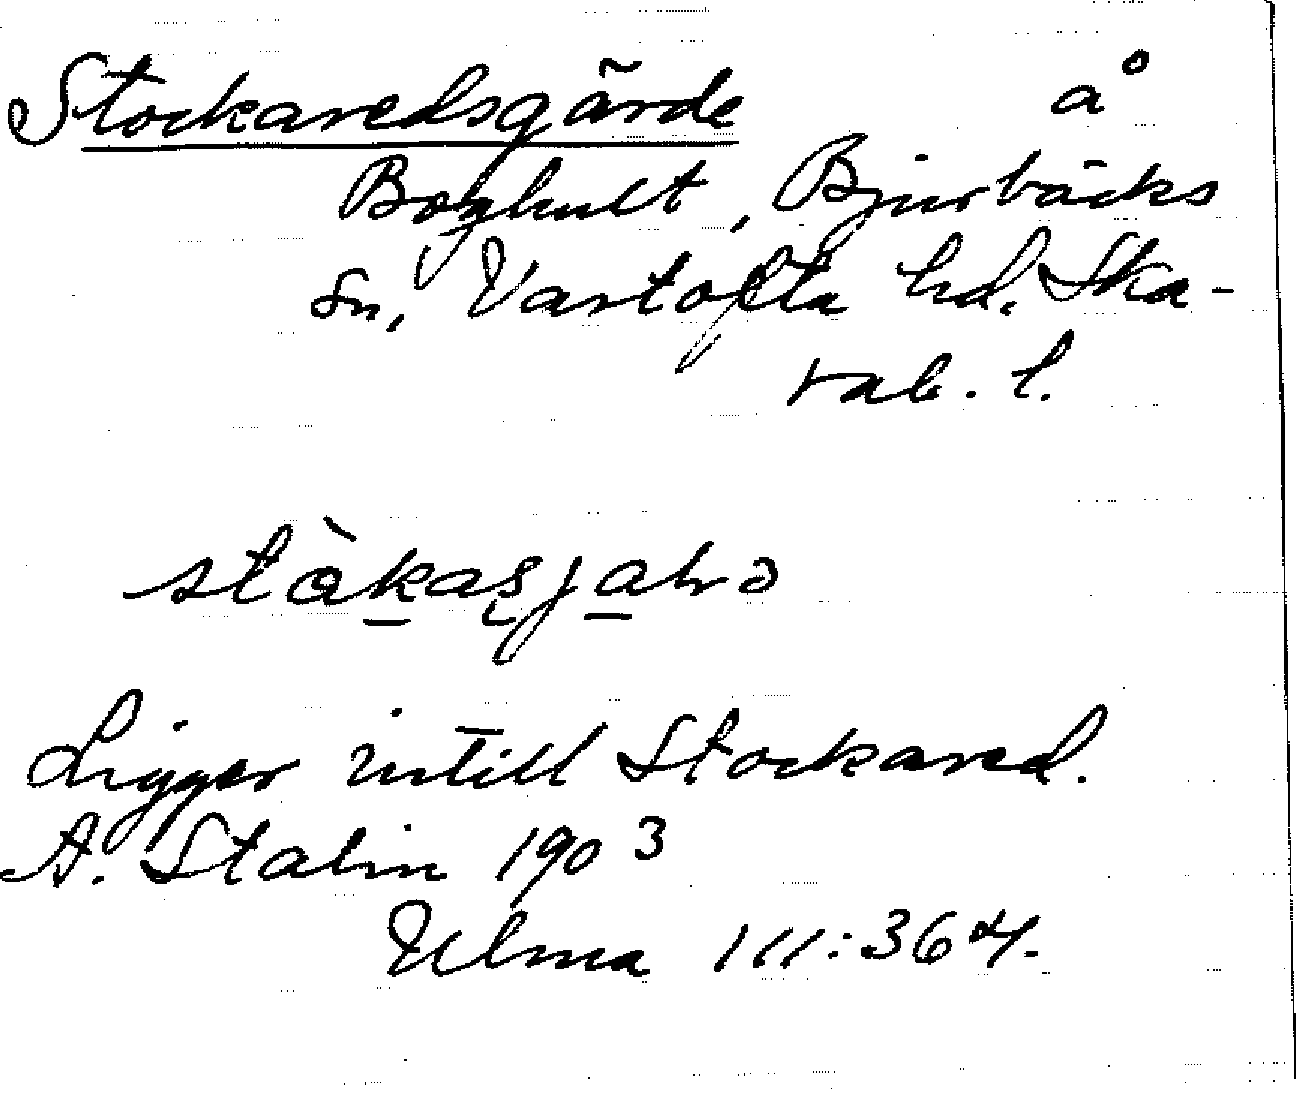 Stockaredsgärde å
Boghult, Bjurbäcks
sn, Vartofta hd. Ska-
rab. l.
Ligger intill Stockared.
A. Stalin 1903
Ulma 111:364.